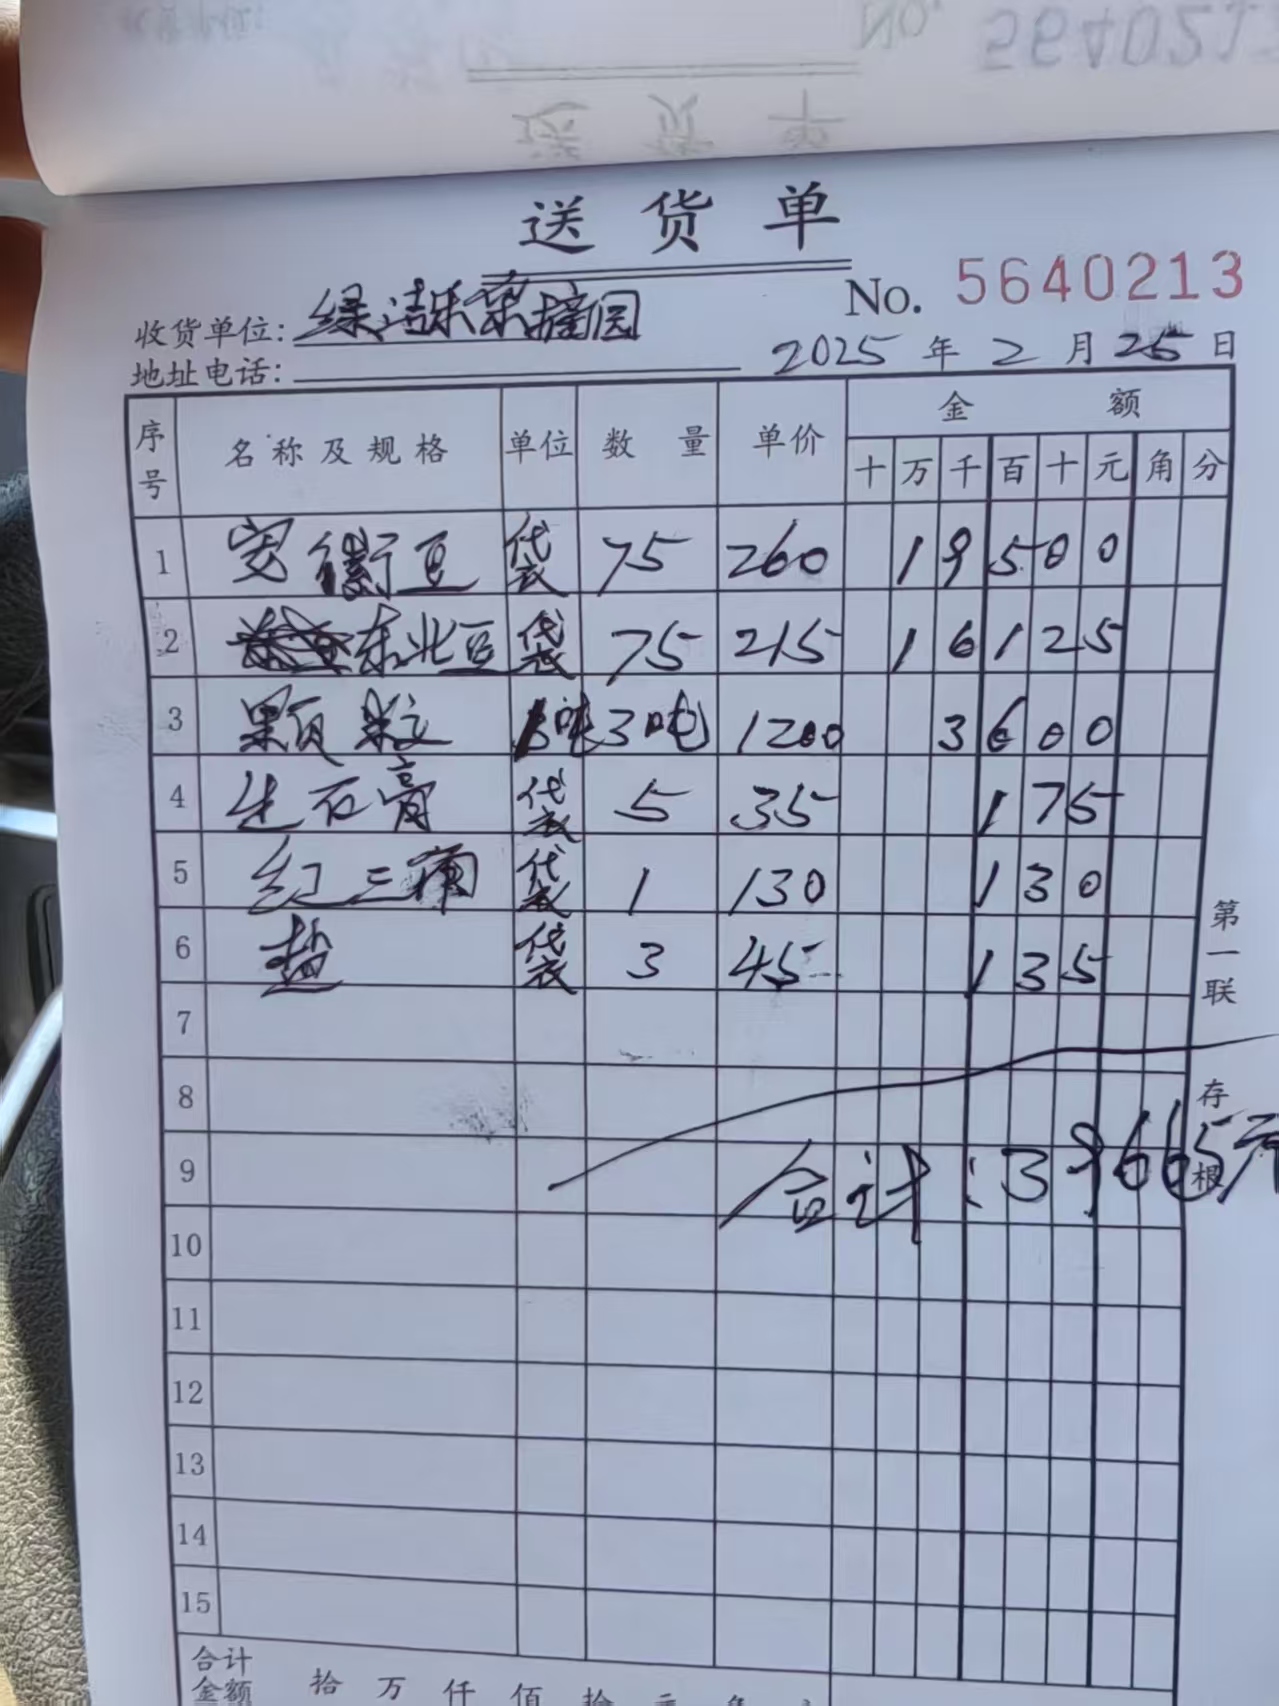 送货单
No. 5640213
收货单位：绿洁乐采摘园
2025年2月25日
地址电话：
序号 名称及规格 单位 数量 单价 金额
十 万 千 百 十 元 角 分
1 安徽豆 袋 75 260 19500
2 东北豆 袋 75 215 16125
3 颗粒 吨 3吨 1200 3600
4 生石膏 袋 5 35 175
5 红三 袋 1 130 130
6 盐 袋 3 45 135
7
8
9 合计：39665元
10
11
12
13
14
15
第一联 存根
合计金额 拾 万 仟 佰 拾 元